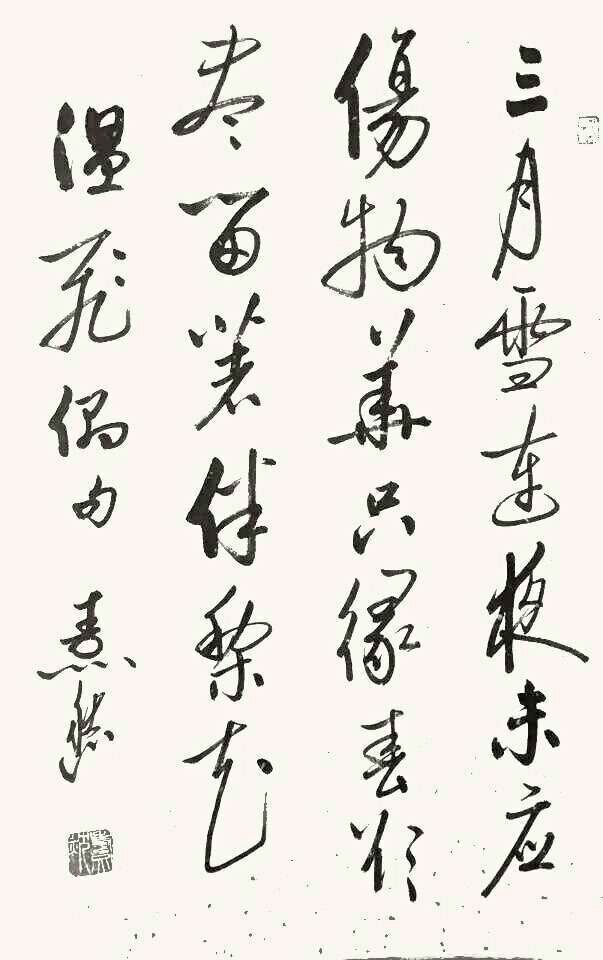 三月雪連夜未应
傷物華只緣春欲
盡留著伴梨花
温飛偶句